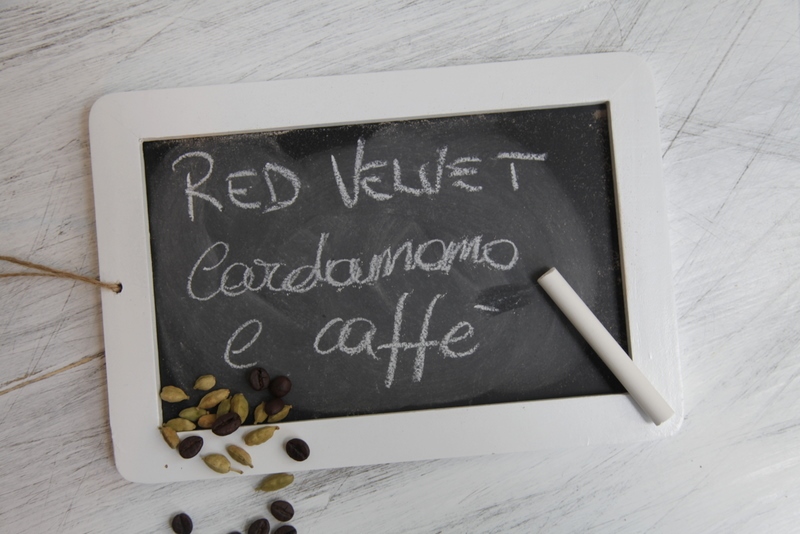 RED VELVET
Cardamomo
e caffè